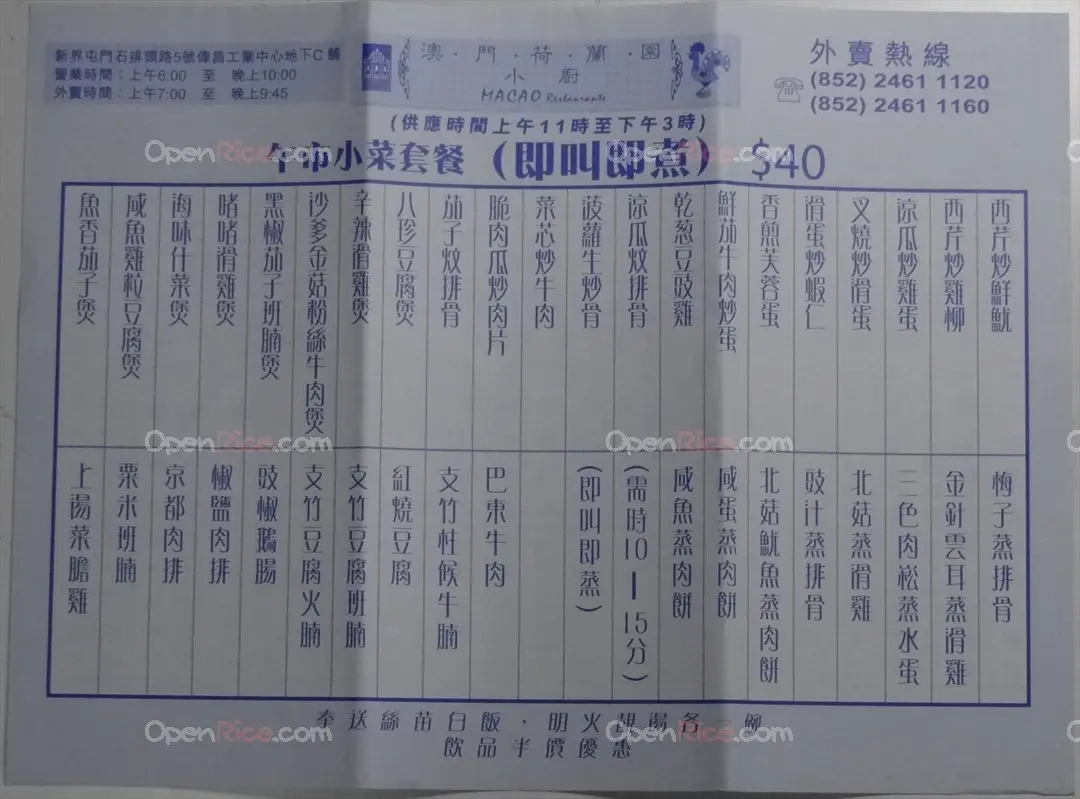 新界屯門石排頭路5號偉昌工業中心地下C舖
營業時間：上午6:00 至 晚上10:00
外賣時間：上午7:00 至 晚上9:45
澳·門·荷·蘭·園
小廚
MACAO Restaurante
外賣熱線
(852) 2461 1120
(852) 2461 1160
(供應時間上午11時至下午3時)
午市小菜套餐（即叫即煮） $40
西芹炒鮮魷
西芹炒雞柳
涼瓜炒雞蛋
叉燒炒滑蛋
滑蛋炒蝦仁
香煎芙蓉蛋
鮮茄牛肉炒蛋
乾葱豆豉雞
涼瓜炆排骨
菠蘿生炒骨
菜芯炒牛肉
脆肉瓜炒肉片
茄子炆排骨
八珍豆腐煲
辛辣滑雞煲
沙爹金菇粉絲牛肉煲
黑椒茄子班腩煲
啫啫滑雞煲
海味什菜煲
咸魚雞粒豆腐煲
魚香茄子煲
梅子蒸排骨
金針雲耳蒸滑雞
三色肉崧蒸水蛋
北菇蒸滑雞
豉汁蒸排骨
北菇魷魚蒸肉餅
咸蛋蒸肉餅
咸魚蒸肉餅
(需時10—15分)
(即叫即蒸)
巴東牛肉
支竹柱候牛腩
紅燒豆腐
支竹豆腐班腩
支竹豆腐火腩
豉椒鵝腸
椒鹽肉排
京都肉排
粟米班腩
上湯菜膽雞
奉送絲苗白飯，明火靚湯各一碗
飲品半價優惠
OpenRice.com
OpenRice.com
OpenRice.com
OpenRice.com
OpenRice.com
OpenRice.com